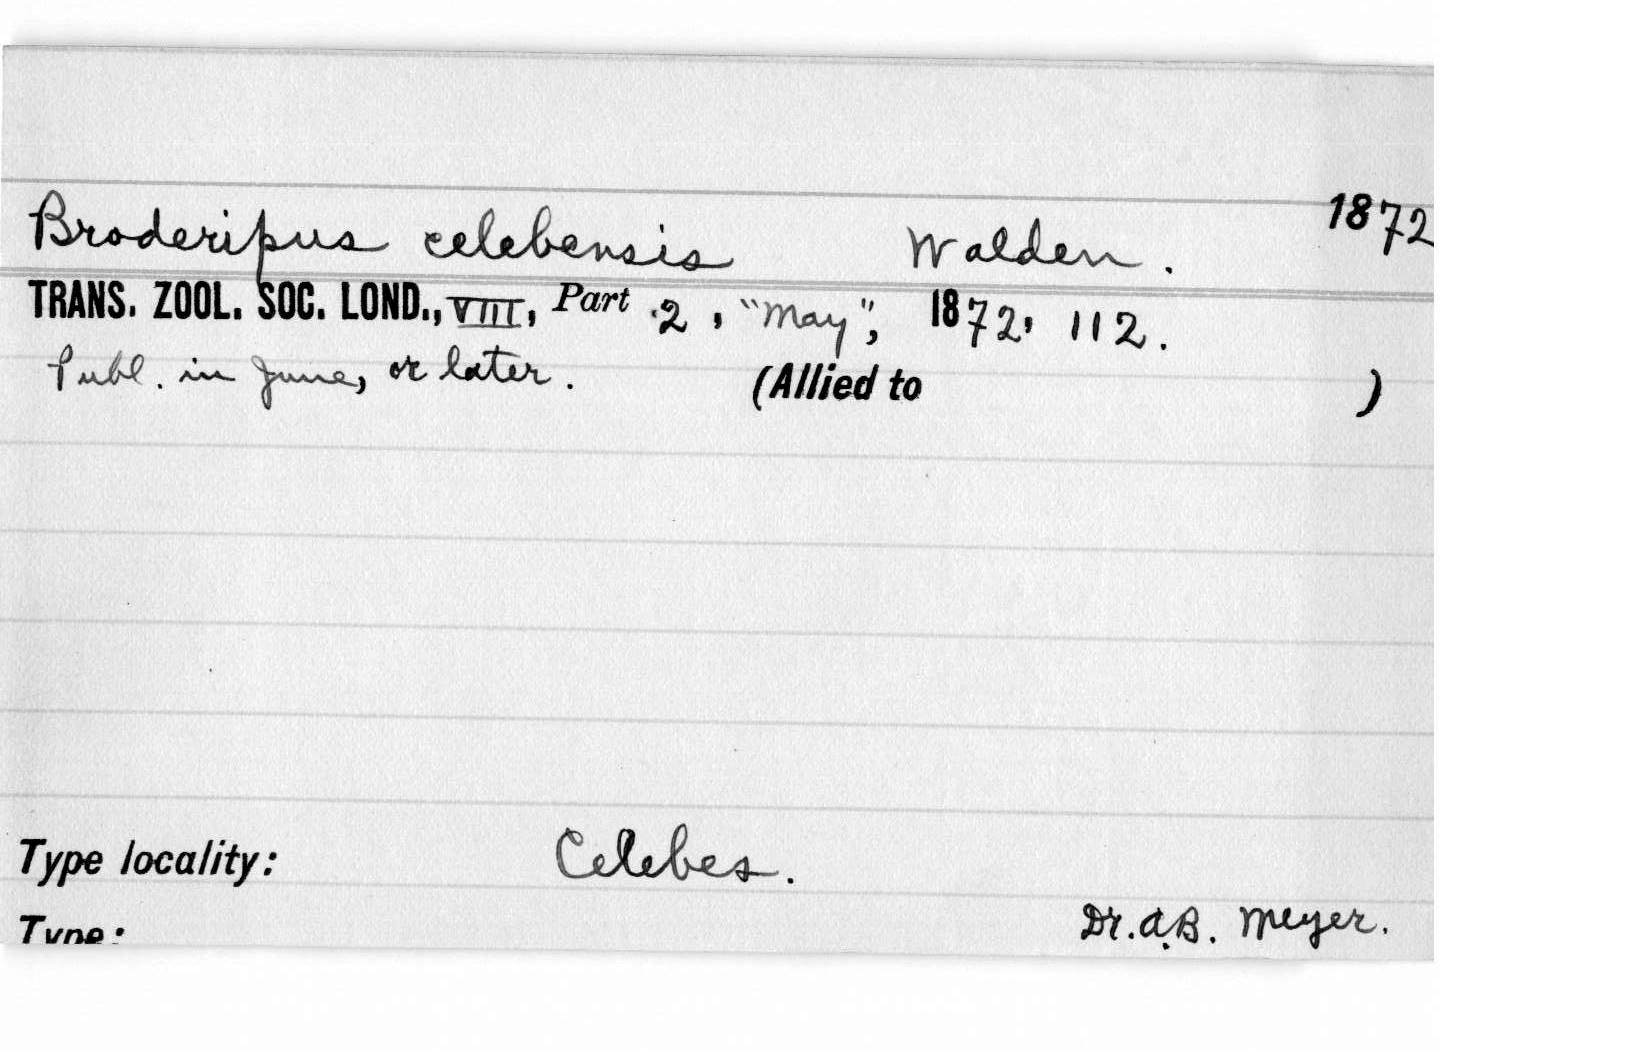 Broderipus celebensis Walden. 1872
TRANS. ZOOL. SOC. LOND., VIII, Part 2, "May", 1872, 112.
Publ. in June, or later. (Allied to )
Type locality: Celebes.
Type: Dr. A.B. Meyer.